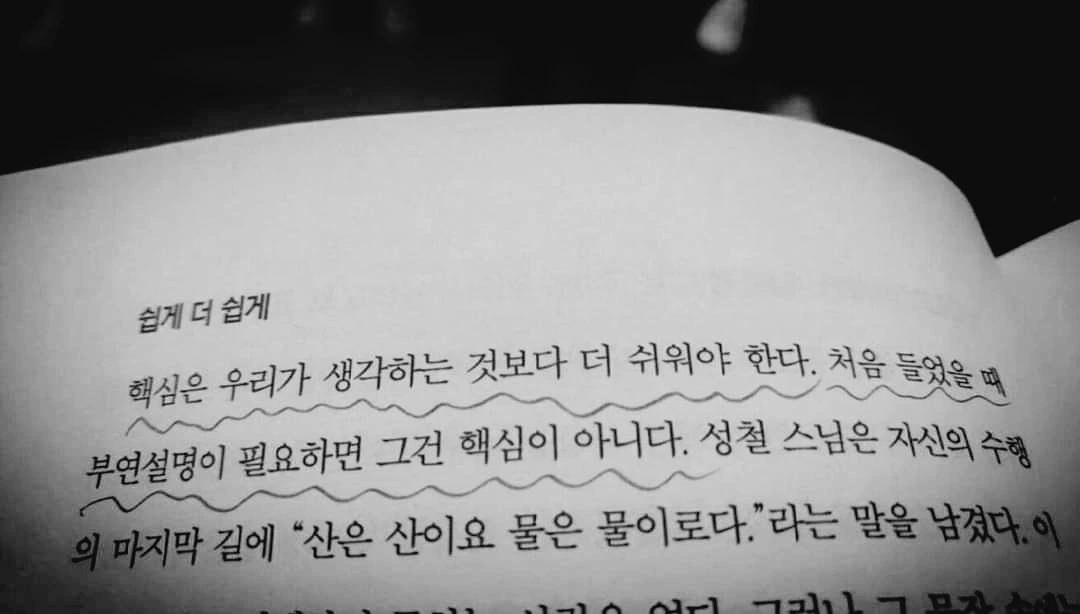 쉽게 더 쉽게
핵심은 우리가 생각하는 것보다 더 쉬워야 한다. 처음 들었을 때
부연설명이 필요하면 그건 핵심이 아니다. 성철 스님은 자신의 수행
의 마지막 길에 “산은 산이요 물은 물이로다.”라는 말을 남겼다. 이
없다. 그러나 그